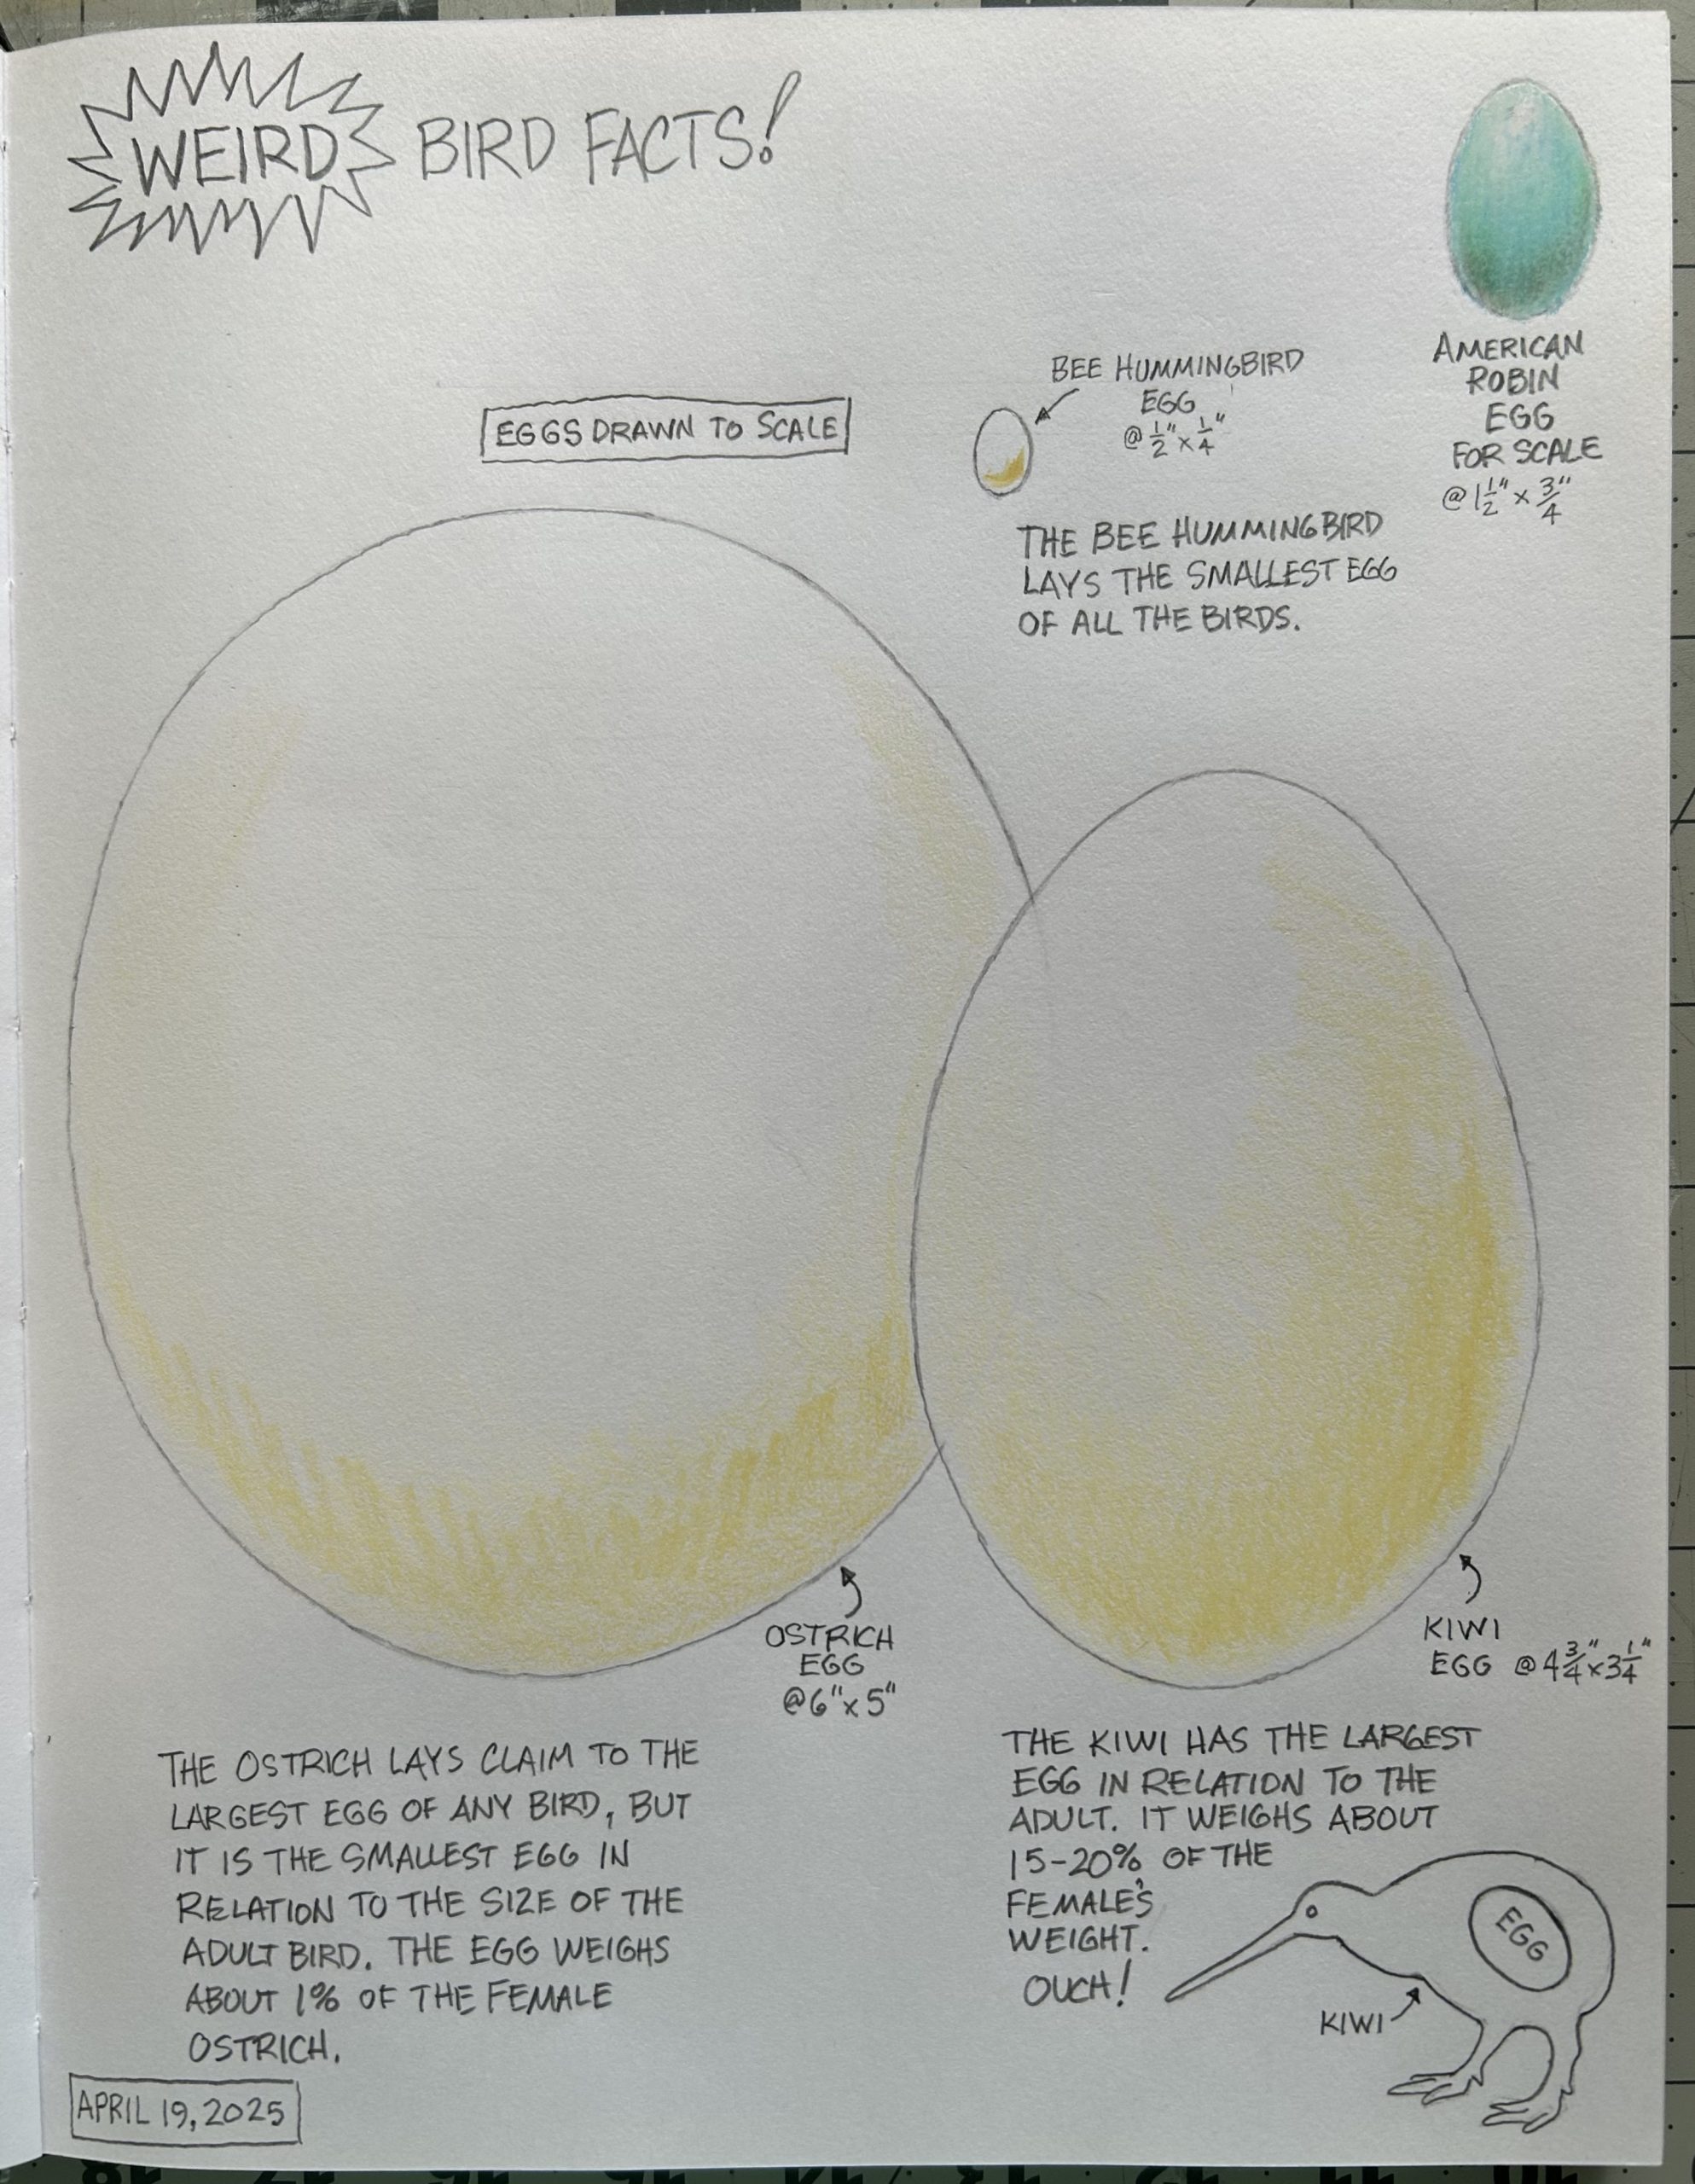 WEIRD BIRD FACTS!
AMERICAN
ROBIN
EGG
FOR SCALE
@ 1 1/2" x 3/4"
BEE HUMMINGBIRD
EGG
@ 1/2" x 1/4"
EGGS DRAWN TO SCALE
THE BEE HUMMINGBIRD
LAYS THE SMALLEST EGG
OF ALL THE BIRDS.
OSTRICH
EGG
@ 6" x 5"
KIWI
EGG @ 4 3/4" x 3 1/4"
THE OSTRICH LAYS CLAIM TO THE
LARGEST EGG OF ANY BIRD, BUT
IT IS THE SMALLEST EGG IN
RELATION TO THE SIZE OF THE
ADULT BIRD. THE EGG WEIGHS
ABOUT 1% OF THE FEMALE
OSTRICH.
THE KIWI HAS THE LARGEST
EGG IN RELATION TO THE
ADULT. IT WEIGHS ABOUT
15-20% OF THE
FEMALE'S
WEIGHT.
OUCH!
EGG
KIWI
APRIL 19, 2025